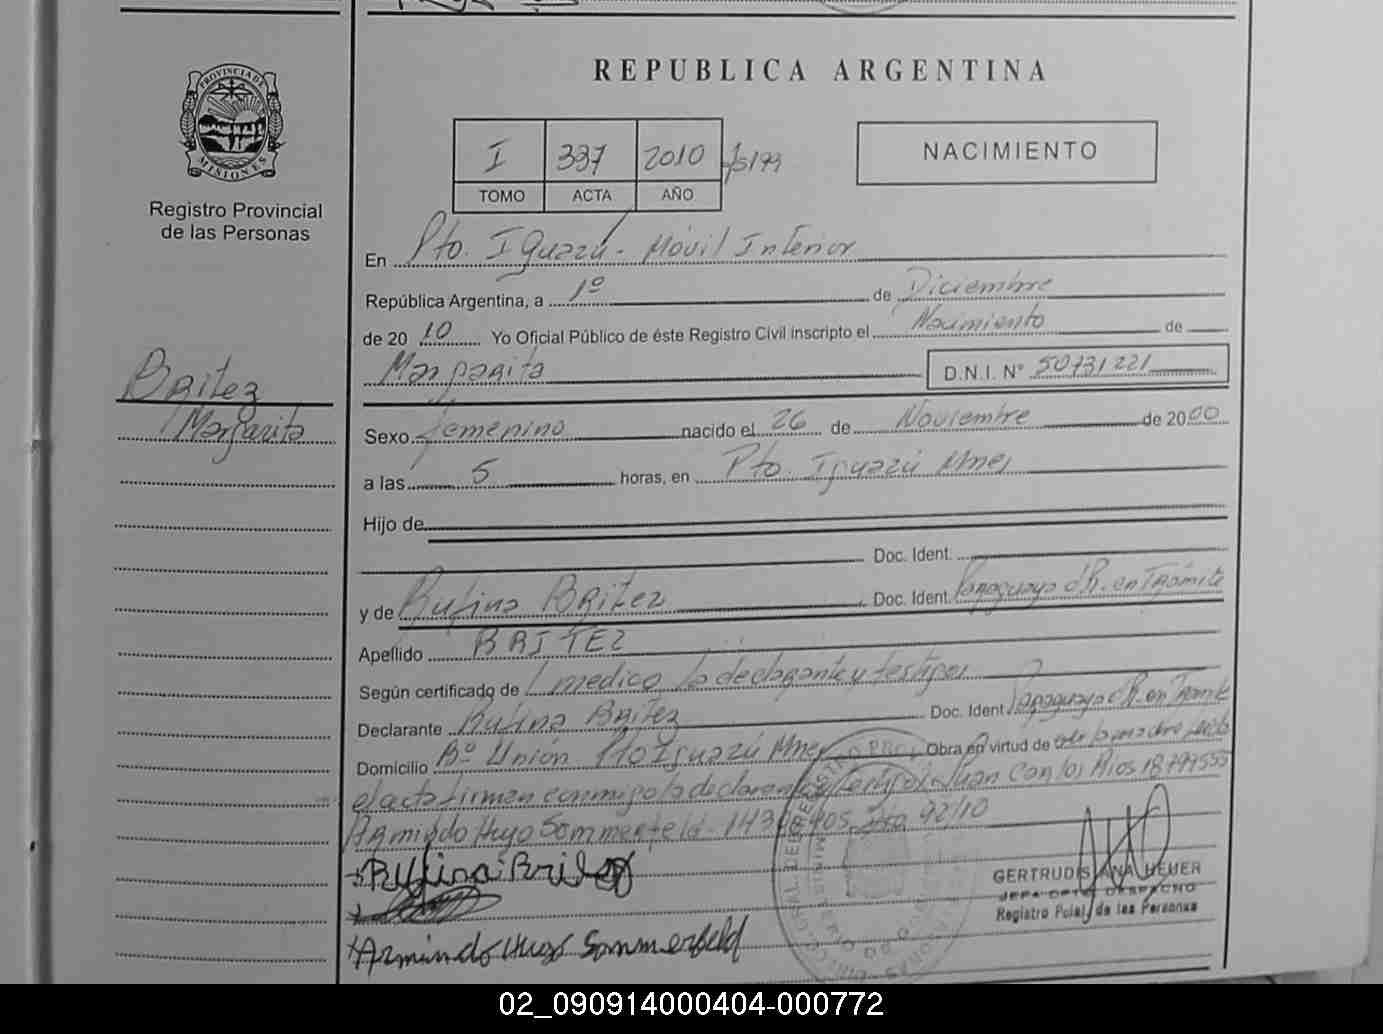 REPUBLICA ARGENTINA
PROVINCIA DE
MISIONES
Registro Provincial
de las Personas
I 337 2010
TOMO ACTA AÑO
NACIMIENTO
En Pto. Iguazú - Móvil Interior
República Argentina, a 1º de Diciembre
de 2010 Yo Oficial Público de éste Registro Civil inscripto el Nacimiento de
Margarita D.N.I. Nº 50731221
Britez
Margarita
Sexo femenino nacido el 26 de Noviembre de 2000
a las 5 horas, en Pto. Iguazú Mnes
Hijo de
Doc. Ident.
y de Rufina Britez Doc. Ident. Paraguaya d R. en Trámite
Apellido BRITEZ
Según certificado de médico la declarante y testigos
Declarante Rufina Britez Doc. Ident Paraguaya d R. en Tramite
Domicilio Bº Unión Pto Iguazú Mnes Obra en virtud de
el acta firman conmigo la declarante y Juan Carlos Rios 18799555
Armindo Hugo Sommerfeld 92/10
Rufina Britez
Armindo Hugo Sommerfeld
GERTRUDIS ANA HEUER
JEFA DPTO DESPACHO
Registro Pcial. de las Personas
02_090914000404-000772